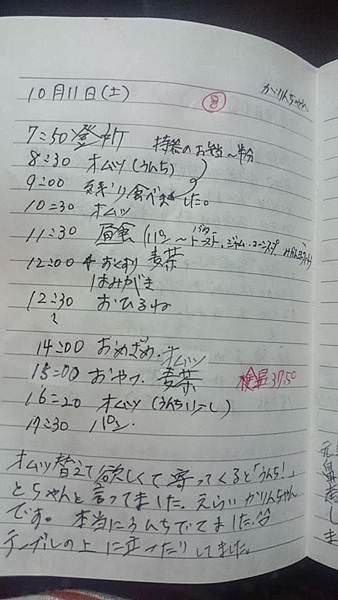 かりんちゃん
10月11日(土) ⑧
7:50 登所
持参のお弁当〜半分
8:30 オムツ(うんち)
9:00 おにぎり食べました。
10:30 オムツ
11:30 昼食(パン〜トースト、ジャム、コーンスープ
12:00 麦茶
はみがき
12:30 おひるね
〜
14:00 おめざめ、オムツ
15:00 おやつ、麦茶 検温37.50
16:20 オムツ(うんち少し)
17:30 パン
オムツ替えて欲しくて寄ってくると「うんち!」
とちゃんと言ってました。えらいかりんちゃん
です。本当にうんちでてました。
テーブルの上に立ったりしてました。